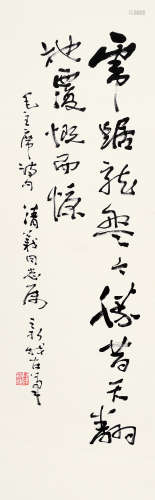 虎踞龙盘今胜昔天翻
地覆慨而慷
毛主席诗句 清义同志属